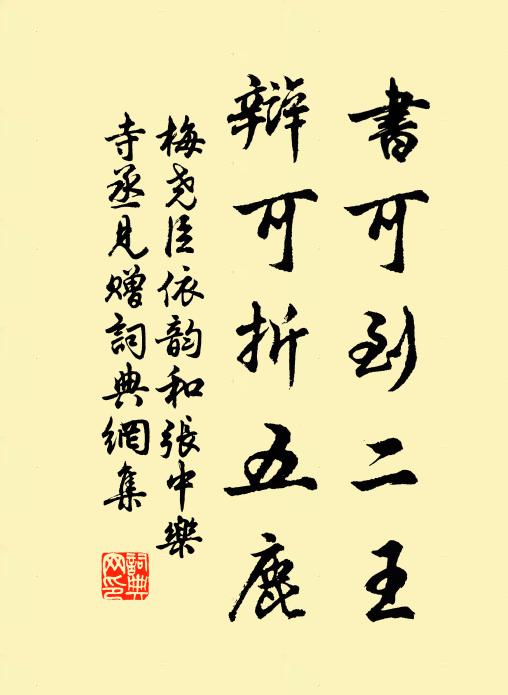 書可到二王
辯可折五鹿
梅堯臣依韵和張中樂
寺丞見贈詞典網集
詞典
网印